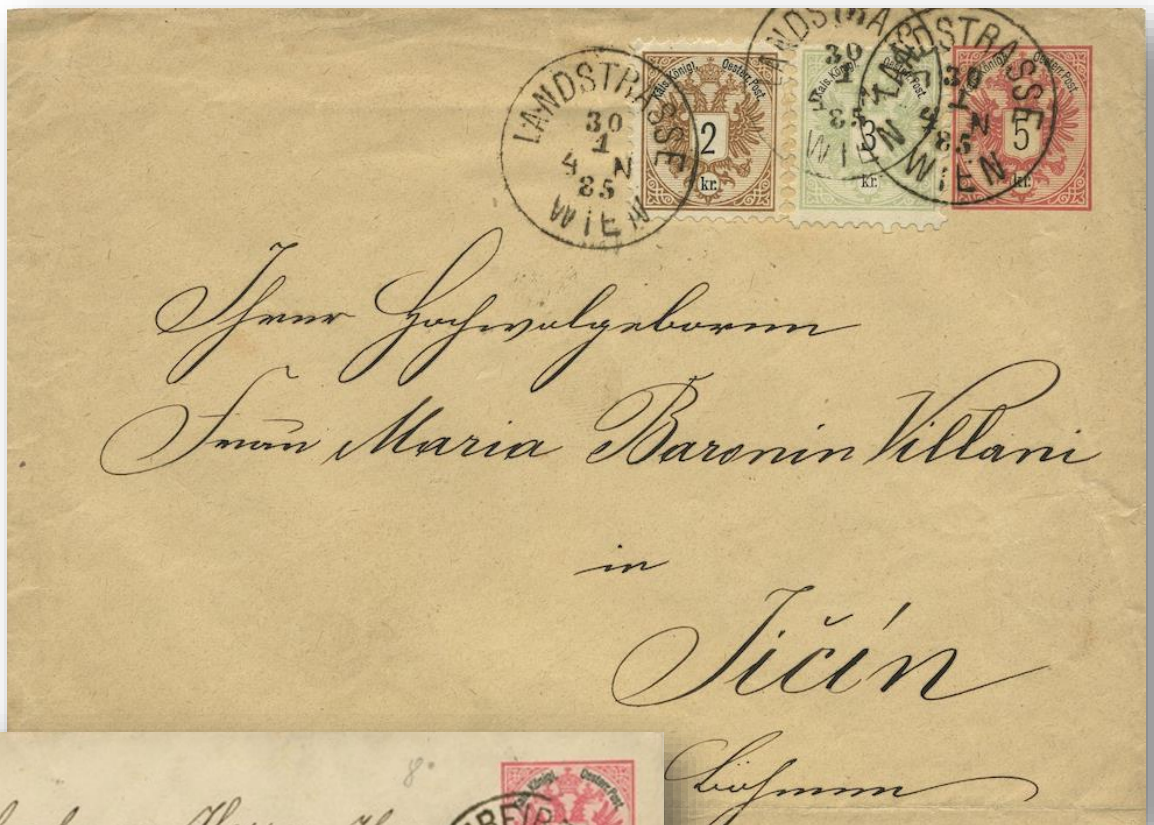 LANDSTRASSE
30
1
4 N
85
WIEN
Kais. Königl. Oesterr. Post.
2
kr.
LANDSTRASSE
30
1
85
WIEN
Kais. Königl. Oesterr. Post.
3
kr.
LANDSTRASSE
30
1
4 N
85
WIEN
Kais. Königl. Oesterr. Post.
5
kr.
Ihrer Hochwolgeboren
Frau Maria Baronin Villani
in
Jičín
Böhmen
8.
Kais. Königl. Oesterr. Post.